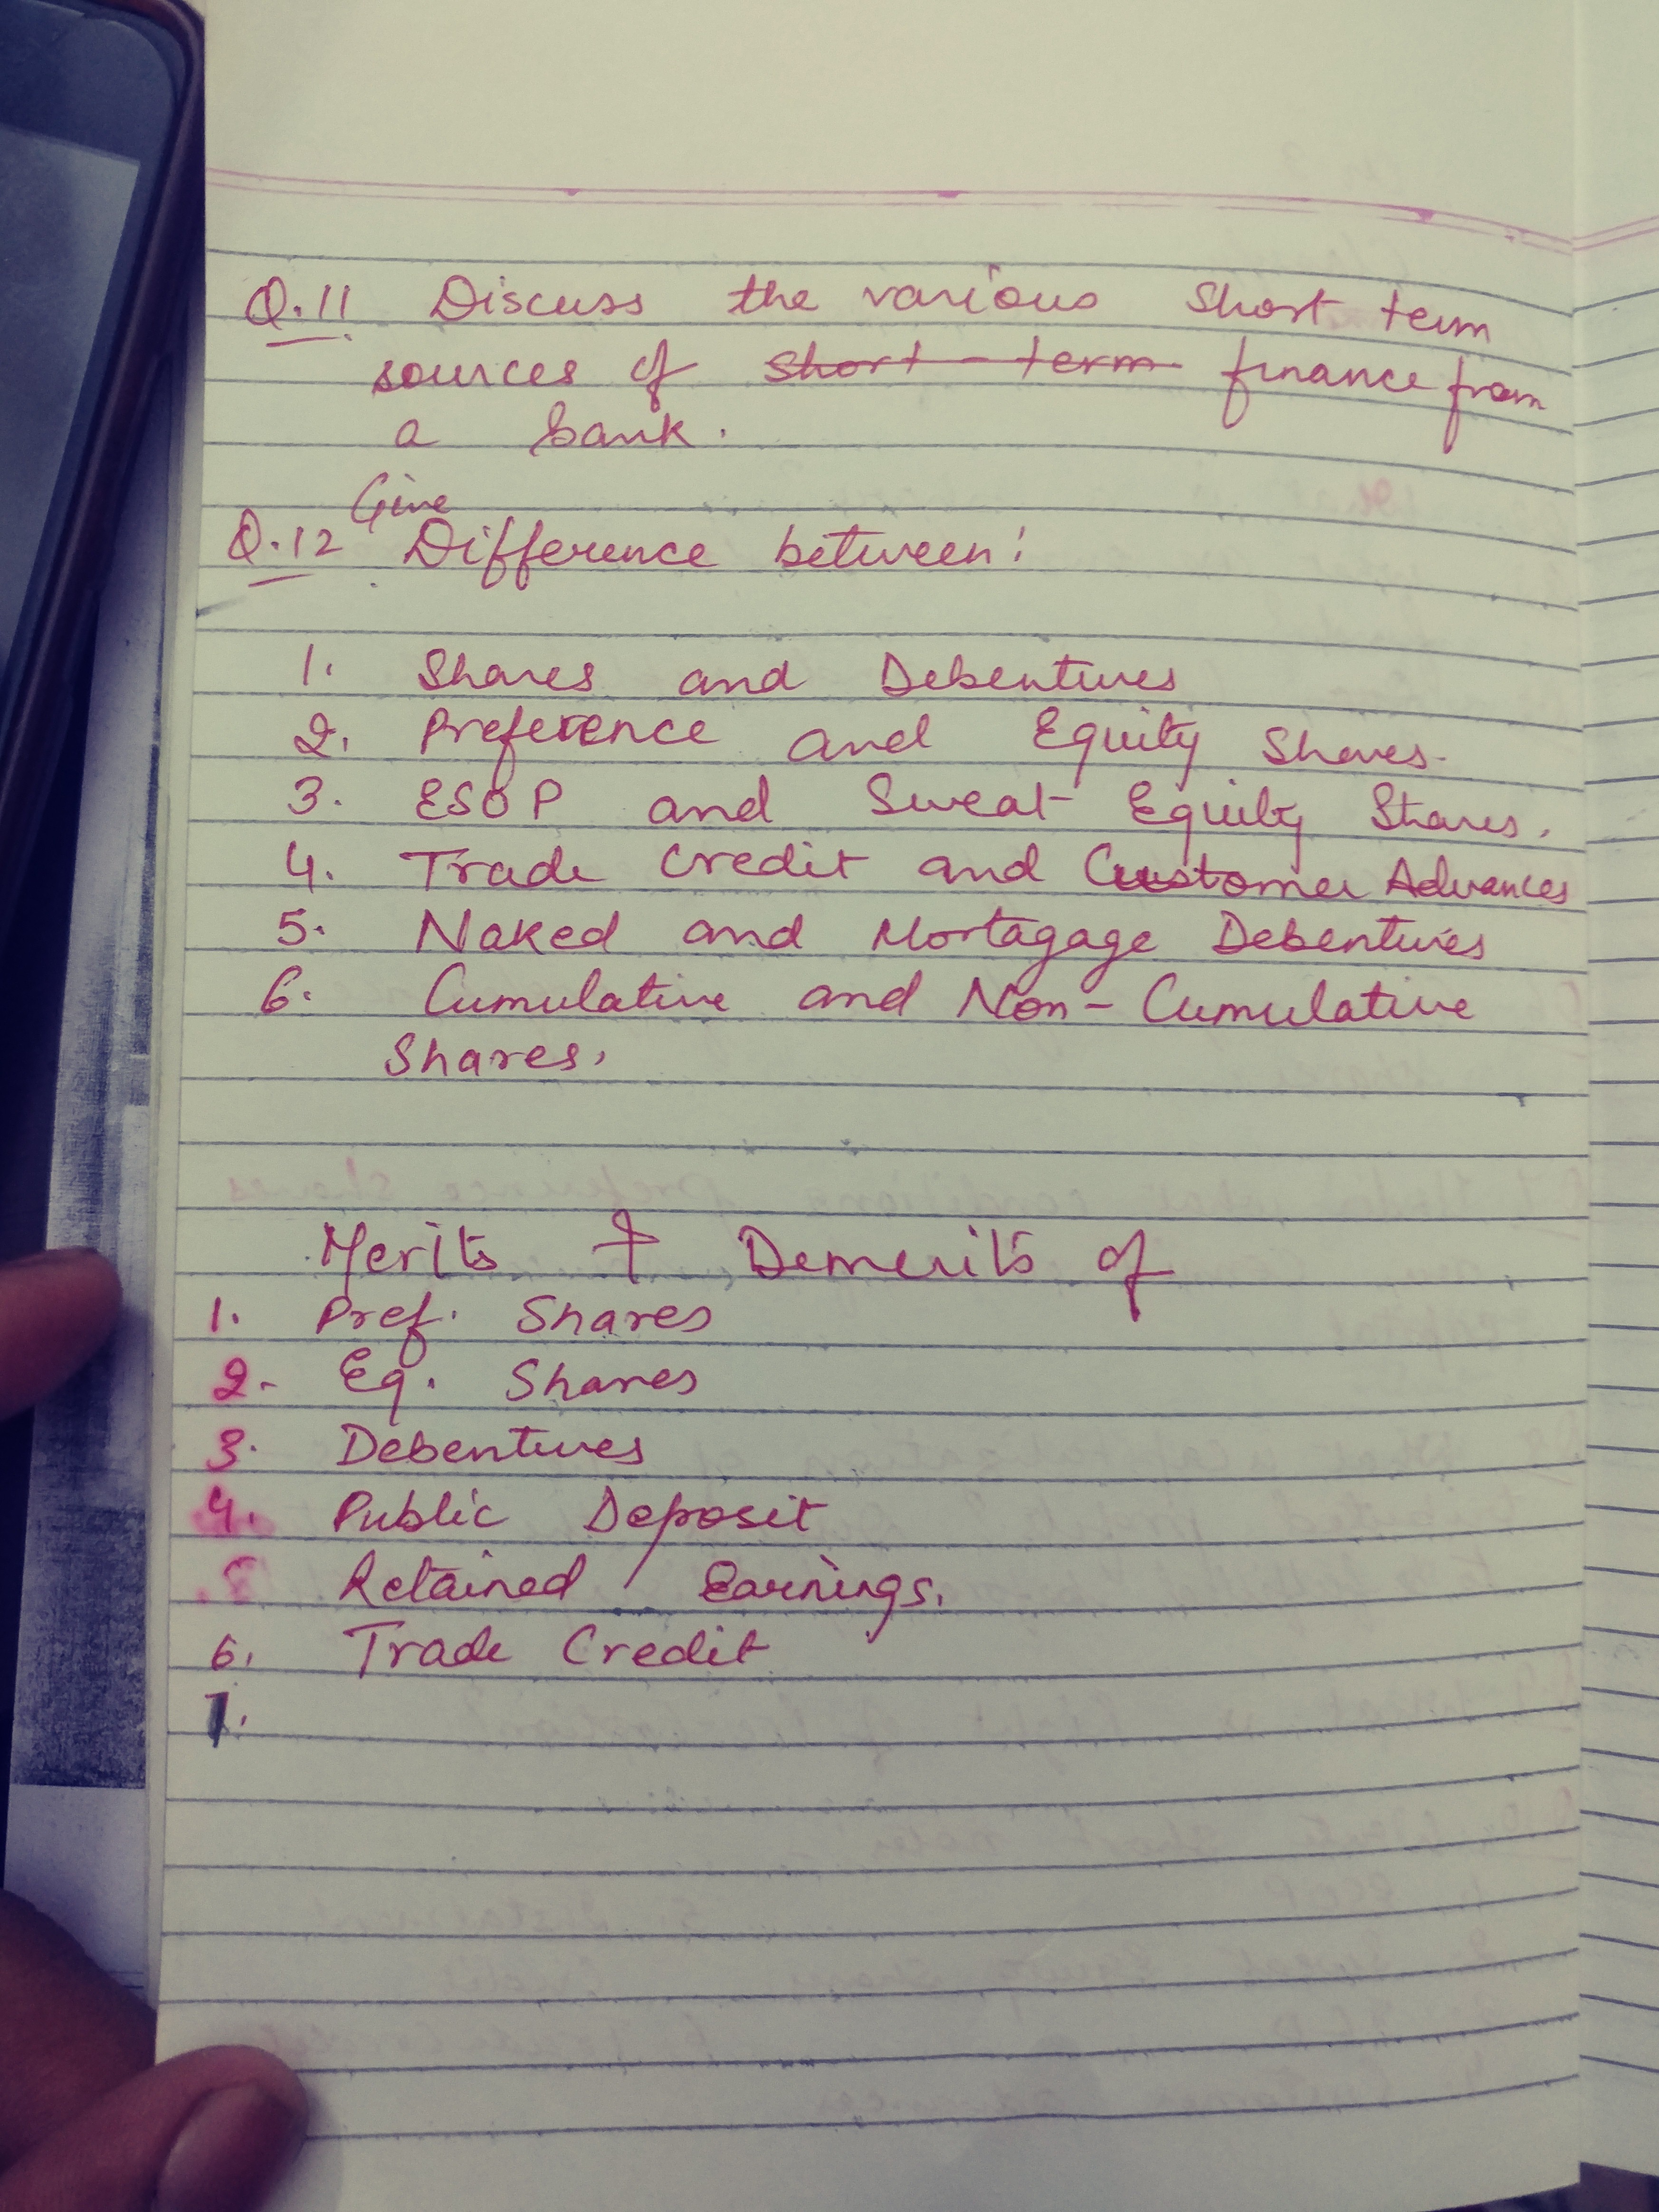 Q.11 Discuss the various Short term
sources of short-term finance from
a bank.
Give
Q.12 Difference between:
1. Shares and Debentures
2. Preference and Equity Shares.
3. ESOP and Sweat Equity Shares.
4. Trade Credit and Customer Advances
5. Naked and Mortagage Debentures
6. Cumulative and Non-Cumulative
Shares.
Merits & Demerits of
1. Pref. Shares
2. Eq. Shares
3. Debentures
4. Public Deposit
5. Retained Earnings.
6. Trade Credit
7.